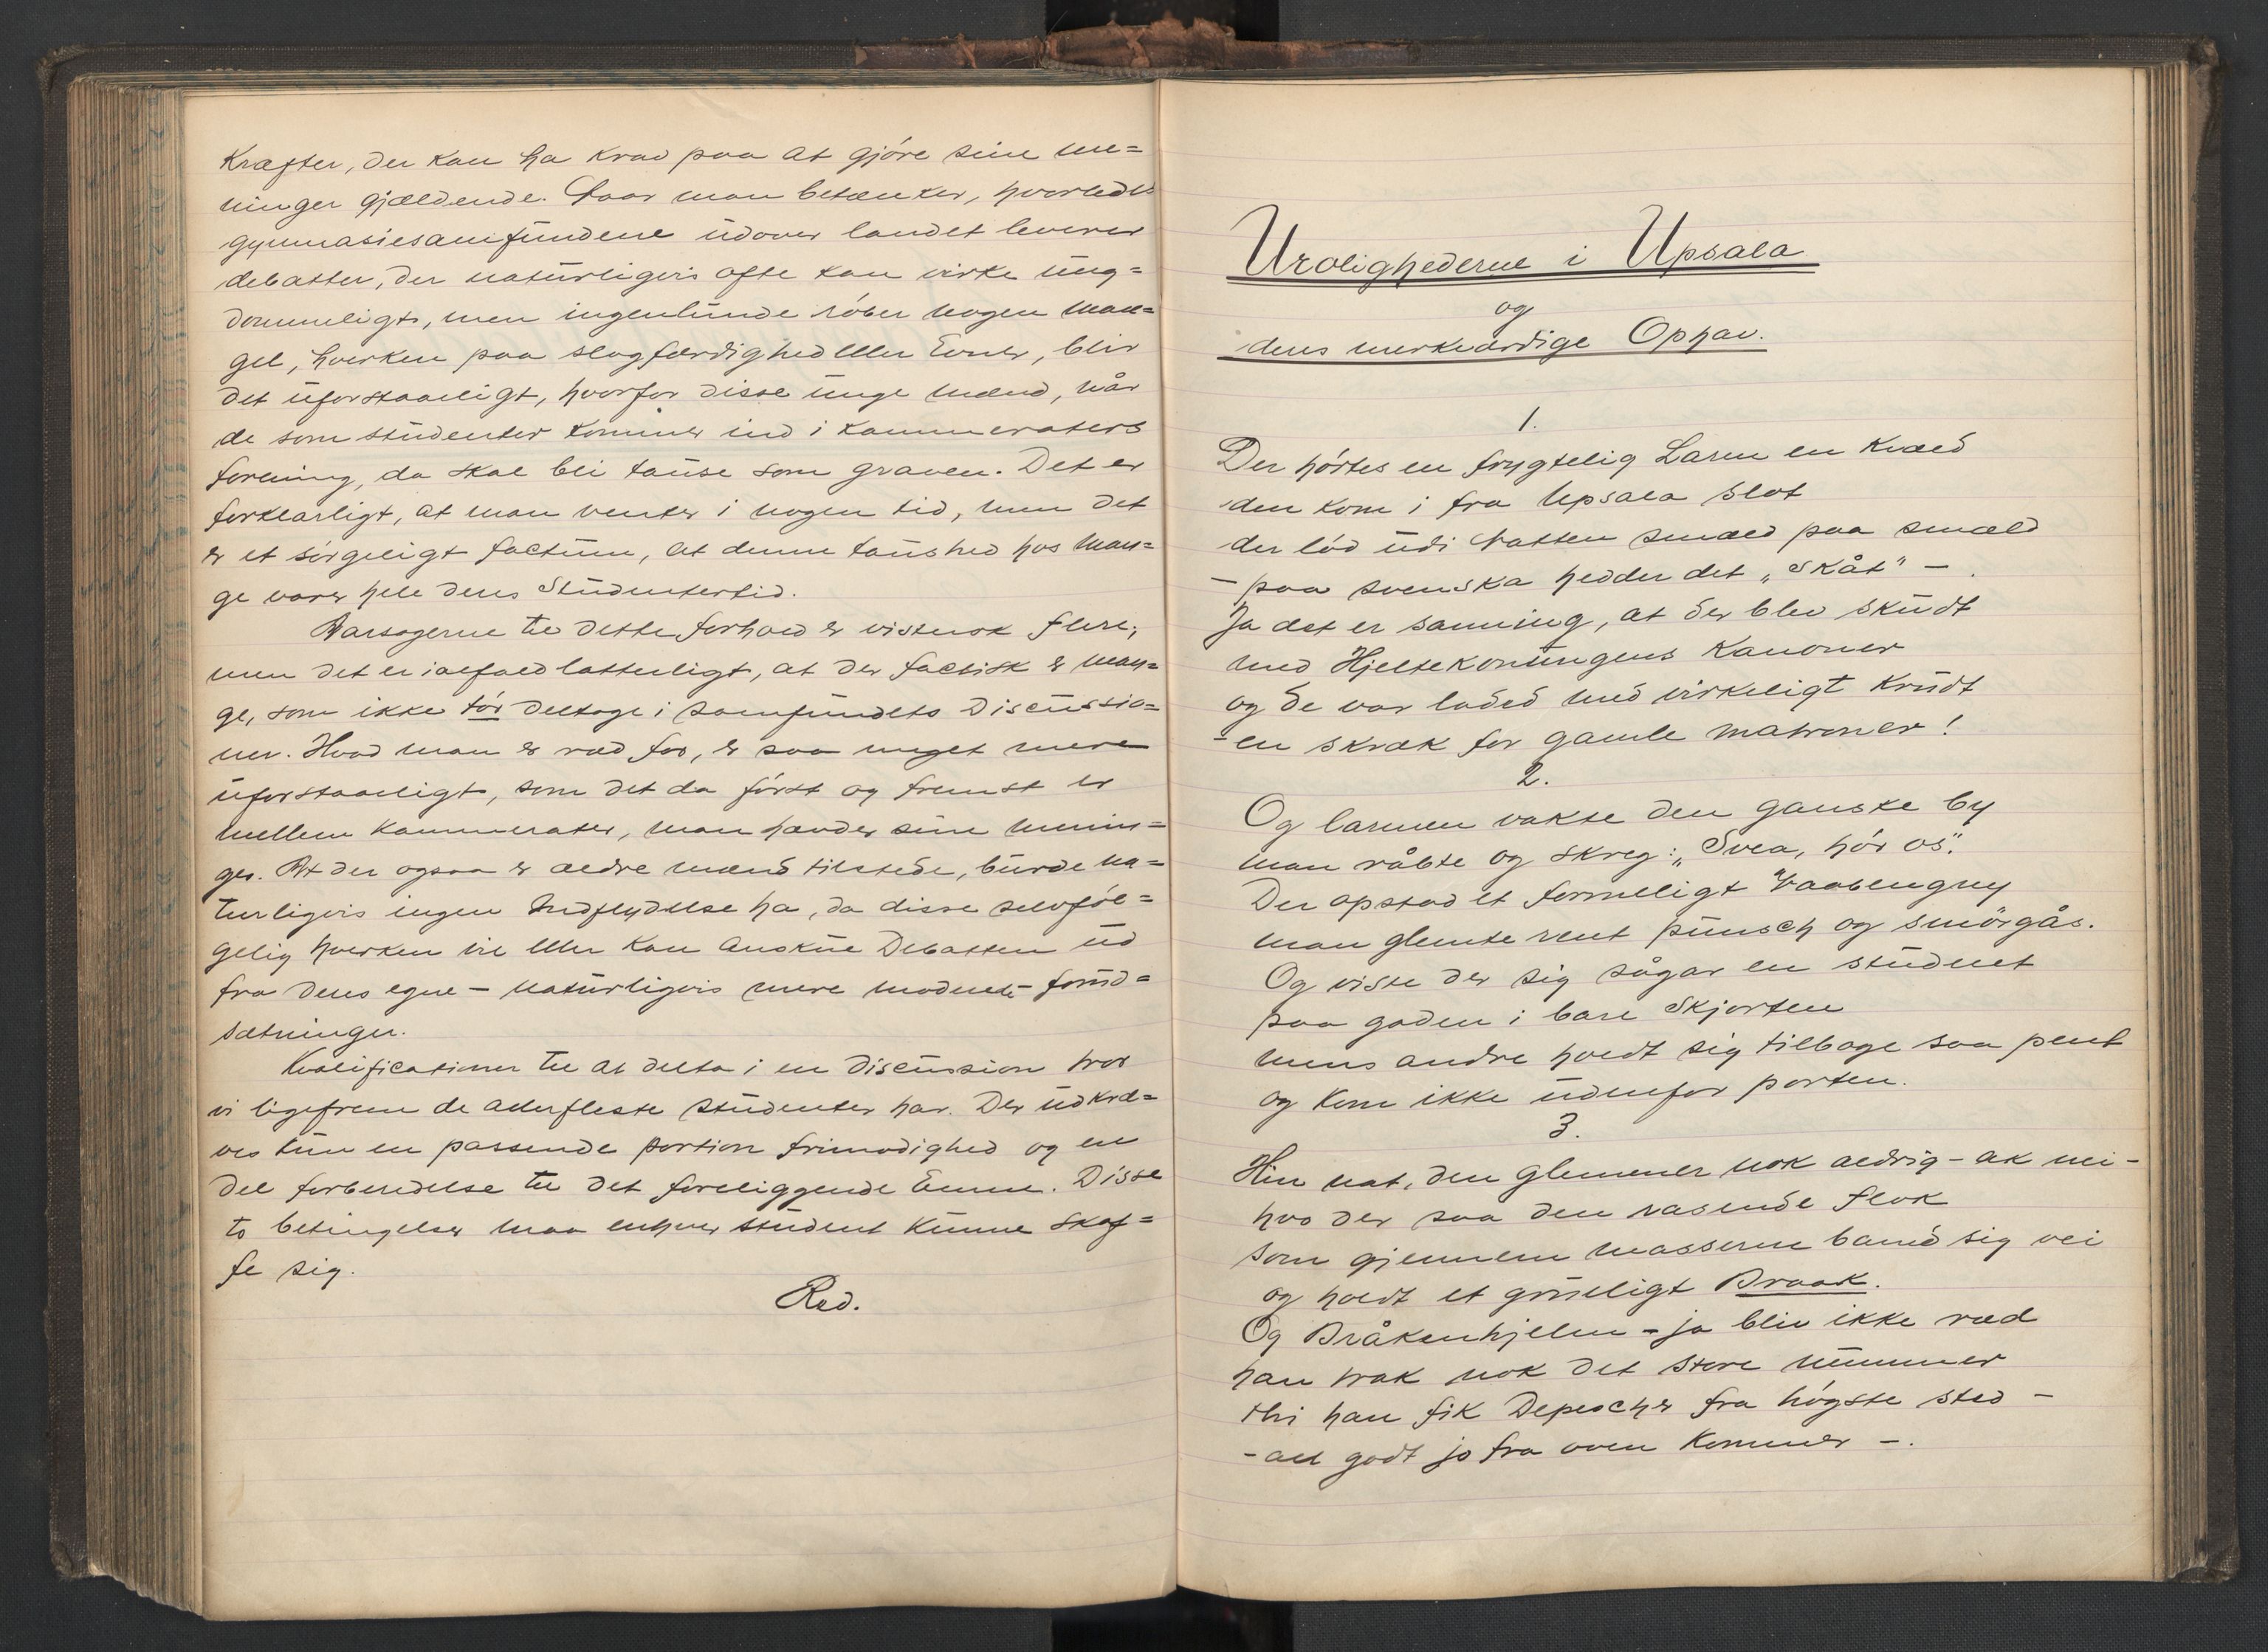 Kræfter, der kan ha krav paa at gjóre sine me=
ninger gjældende. Naar man betænker, hvorledes
gymnasiesamfundene udover landet leverer
debatter, der naturligvis ofte kan virke ung=
dommeligt, men ingenlunde róber nogen man=
gel, hverken paa slagfærdighed eller Evner, blir
det uforstaaeligt, hvorfor disse unge mænd, når
de som studenter kommer ind i kammeraters
forening, da skal bli tause som graven. Det er
forklarligt, at man venter i nogen tid, men det
er et sórgeligt factum, at denne taushed hos man=
ge varer hele deres Studentertid.
Aarsagerne til dette forhold er vistnok flere;
men det er ialfald latterligt, at der factisk er man=
ge, som ikke tór deltage i samfundets Discussio=
ner. Hvad man er ræd for, er saa meget mere
uforstaaeligt, som det da fórst og fremst er
mellem kammerater, man hævder sine menin=
ger. At der ogsaa er ældre mænd tilstede, burde na=
turligvis ingen Indflydelse ha, da disse selvfól=
gelig hverken vil eller kan anskue Debatten ud
fra deres egne – naturligvis mere modnede – forud=
sætninger.
Kvalificationer til at delta i en Discussion tror
vi ligefrem de allerfleste studenter har. Der udkræ=
ves kun en passende portion frimodighed og en
Del forberedelse til det foreliggende Emne. Disse
to betingelser maa enhver student kunne skaf=
fe sig.
Red.
Urolighederne i Upsala
og
deres merkværdige Ophav.
1.
Der hórtes en frygtelig Larm en Kvæld
den kom i fra Upsala slot
der lód udi Natten smæld paa smæld
– paa svenska hedder det „skåt" – .
Ja det er sanning, at der blev skudt
med Hjeltekonungens Kanoner
og de var laded med virkeligt Krudt
– en skræk for gamle matroner!
2.
Og larmen vakte den ganske by
man råbte og skreg: „Svea, hór os".
Der opstod et formeligt Vaabengny
man glemte rent punsch og smörgås.
Og viste der sig sågar en student
paa gaden i bare Skjorten
mens andre holdt sig tilbage saa pent
og kom ikke udenfor porten.
3.
Hin nat, den glemmer nok aldrig – ak nei –
hvo der saa den rasende flok
som gjennem masserne baned sig vei
og holdt et grueligt Braak.
Og Bråkenhjelm – ja bliv ikke ræd
han trak nok det store nummer
thi han fik Depescher fra hógste sted –
– alt godt jo fra oven kommer – .